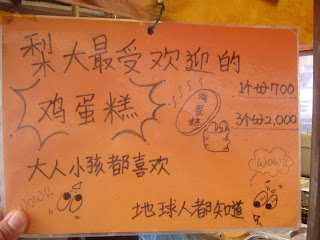 梨大最受欢迎的
鸡蛋糕
1个份700
3个份2,000
鸡蛋糕
大人小孩都喜欢
WOW!!
WOW!!
地球人都知道